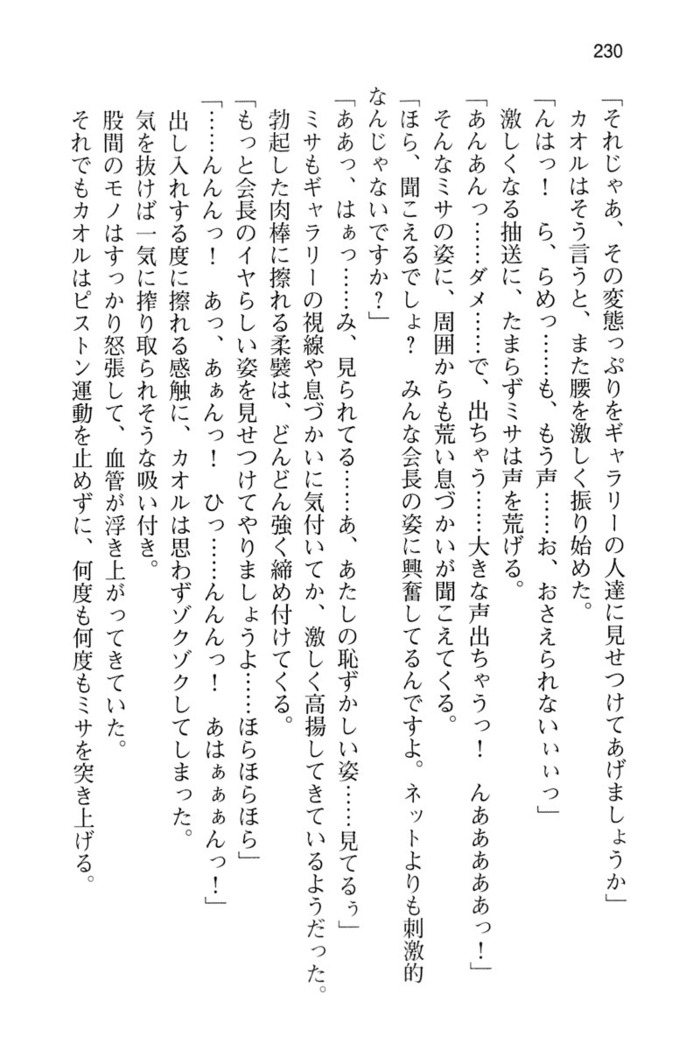 230
「それじゃあ、その変態っぷりをギャラリーの人達に見せつけてあげましょうか」
カオルはそう言うと、また腰を激しく振り始めた。
「んはっ！　ら、らめっ……も、もう声……お、おさえられないぃぃっ」
激しくなる抽送に、たまらずミサは声を荒げる。
「あんあんっ……ダメ……で、出ちゃう……大きな声出ちゃうっ！　んああああぁっ！」
そんなミサの姿に、周囲からも荒い息づかいが聞こえてくる。
「ほら、聞こえるでしょ？　みんな会長の姿に興奮してるんですよ。ネットよりも刺激的
なんじゃないですか？」
「ああっ、はぁっ……み、見られてる……あ、あたしの恥ずかしい姿……見てるぅ」
ミサもギャラリーの視線や息づかいに気付いてか、激しく高揚してきているようだった。
勃起した肉棒に擦れる柔襞は、どんどん強く締め付けてくる。
「もっと会長のイヤらしい姿を見せつけてやりましょうよ……ほらほらほら」
「……んんんっ！　あっ、あぁんっ！　ひっ……んんんっ！　あはぁぁぁんっ！」
出し入れする度に擦れる感触に、カオルは思わずゾクゾクしてしまった。
気を抜けば一気に搾り取られそうな吸い付き。
股間のモノはすっかり怒張して、血管が浮き上がってきていた。
それでもカオルはピストン運動を止めずに、何度も何度もミサを突き上げる。